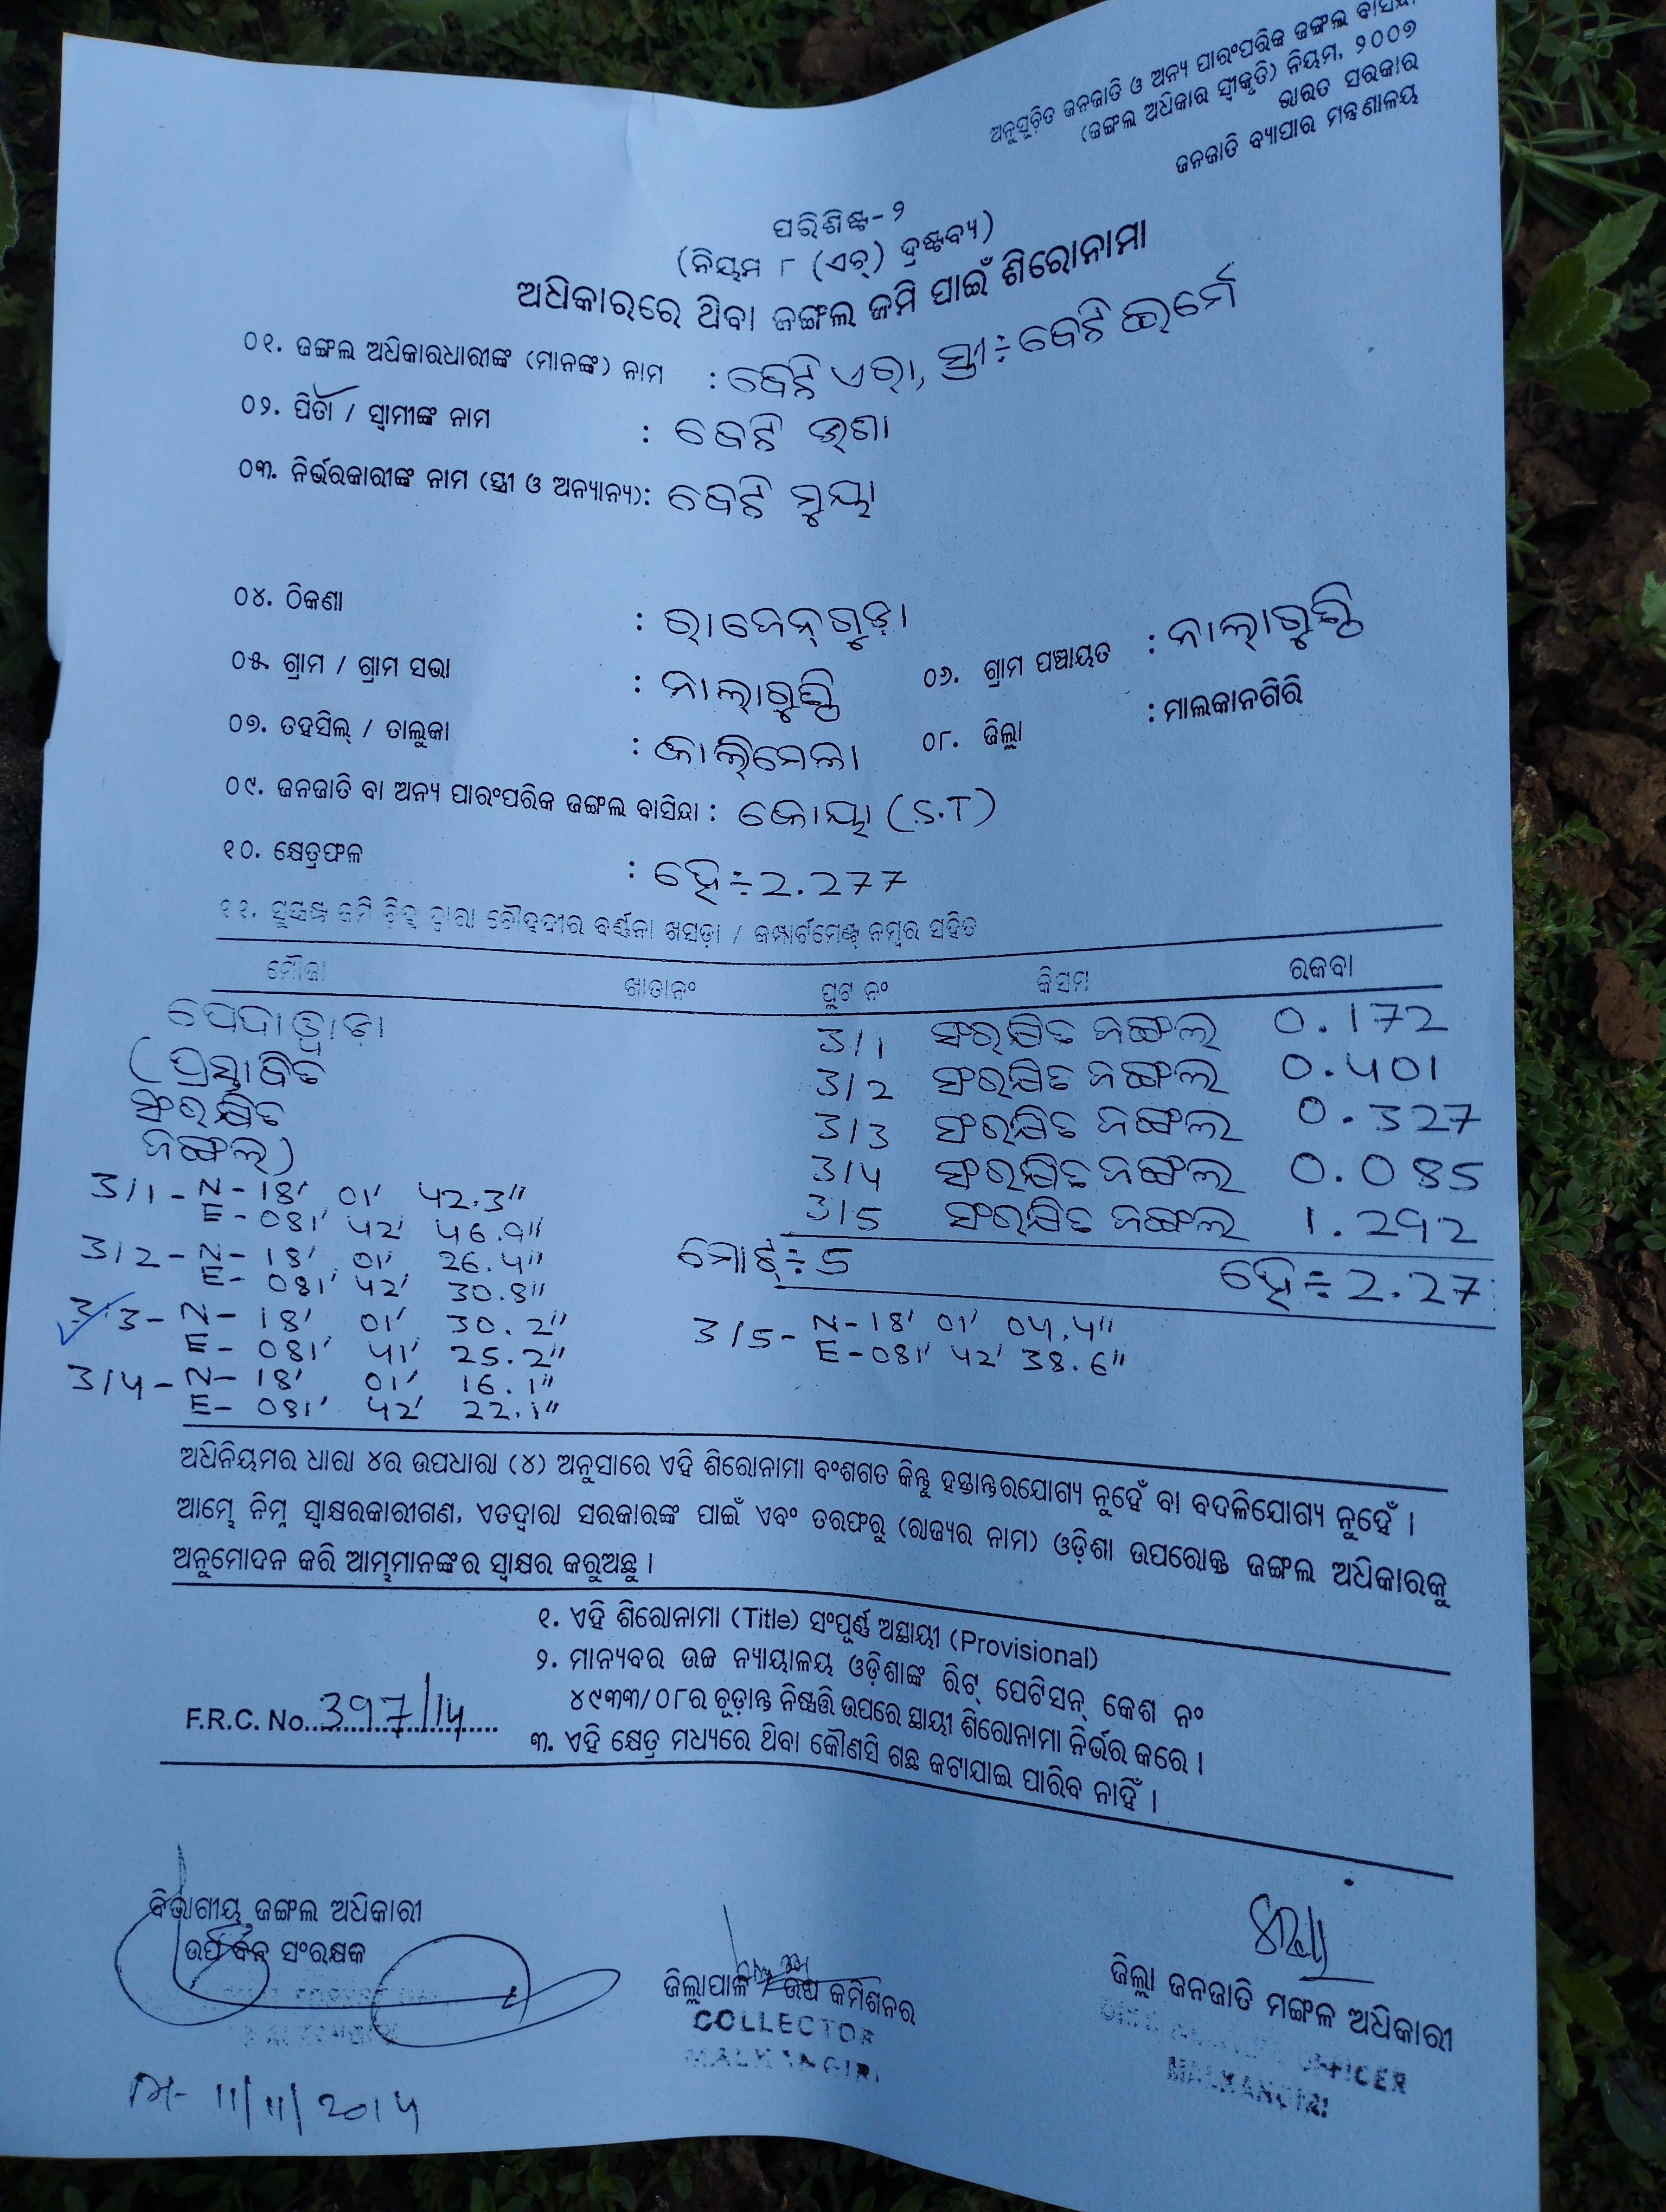 ଅନୁସୂଚିତ ଜନଜାତି ଓ ଅନ୍ୟ ପାରଂପରିକ ଜଙ୍ଗଲ ବାସିନ୍ଦା
(ଜଙ୍ଗଲ ଅଧିକାର ସ୍ୱୀକୃତି) ନିୟମ, ୨୦୦୭
ଭାରତ ସରକାର
ଜନଜାତି ବ୍ୟାପାର ମନ୍ତ୍ରଣାଳୟ
ପରିଶିଷ୍ଟ-୨
(ନିୟମ ୮ (ଏଚ୍) ଦ୍ରଷ୍ଟବ୍ୟ)
ଅଧିକାରରେ ଥିବା ଜଙ୍ଗଲ ଜମି ପାଇଁ ଶିରୋନାମା
୦୧. ଜଙ୍ଗଲ ଅଧିକାରଧାରୀଙ୍କ (ମାନଙ୍କ) ନାମ : ବେଟି ଏରା, ସ୍ତ୍ରୀ÷ ବେଟି ଇର୍ମେ
୦୨. ପିତା / ସ୍ୱାମୀଙ୍କ ନାମ : ବେଟି ଉଙ୍ଗା
୦୩. ନିର୍ଭରକାରୀଙ୍କ ନାମ (ସ୍ତ୍ରୀ ଓ ଅନ୍ୟାନ୍ୟ): ବେଟି ମୁୟା
୦୪. ଠିକଣା : ରାଜେନ୍‌ଗୁଡ଼ା
୦୫. ଗ୍ରାମ / ଗ୍ରାମ ସଭା : ନାଲାଗୁଣ୍ଠି ୦୬. ଗ୍ରାମ ପଞ୍ଚାୟତ : ନାଲାଗୁଣ୍ଠି
୦୭. ତହସିଲ୍ / ତାଲୁକା : କାଲିମେଳା ୦୮. ଜିଲ୍ଲା : ମାଲକାନଗିରି
୦୯. ଜନଜାତି ବା ଅନ୍ୟ ପାରଂପରିକ ଜଙ୍ଗଲ ବାସିନ୍ଦା : କୋୟା (S.T)
୧୦. କ୍ଷେତ୍ରଫଳ : ହେ÷2.277
୧୧. ସୁସ୍ପଷ୍ଟ ଜମି ଚିହ୍ନ ଦ୍ୱାରା ଚୌହଦୀର ବର୍ଣ୍ଣନା ଖସଡ଼ା / କମ୍ପାର୍ଟମେଣ୍ଟ ନମ୍ବର ସହିତ
ମୌଜା ଖାତା ନଂ ପ୍ଲଟ ନଂ କିସମ ରକବା
3/1 ସଂରକ୍ଷିତ ଜଙ୍ଗଲ 0.172
(ପ୍ରସ୍ତାବିତ 3/2 ସଂରକ୍ଷିତ ଜଙ୍ଗଲ 0.401
ସଂରକ୍ଷିତ 3/3 ସଂରକ୍ଷିତ ଜଙ୍ଗଲ 0.327
ଜଙ୍ଗଲ) 3/4 ସଂରକ୍ଷିତ ଜଙ୍ଗଲ 0.085
3/5 ସଂରକ୍ଷିତ ଜଙ୍ଗଲ 1.292
ମୋଟ୍÷5 ହେ÷2.27
3/1 - N- 18' 01' 42.3"
E- 081' 42' 46.9"
3/2 - N- 18' 01' 26.4"
E- 081' 42' 30.8"
3/3 - N- 18' 01' 30.2"
E- 081' 41' 25.2"
3/4 - N- 18' 01' 16.1"
E- 081' 42' 22.1"
3/5 - N-18' 01' 04.4"
E-081' 42' 38.6"
ଅଧିନିୟମର ଧାରା ୪ର ଉପଧାରା (୪) ଅନୁସାରେ ଏହି ଶିରୋନାମା ବଂଶଗତ କିନ୍ତୁ ହସ୍ତାନ୍ତରଯୋଗ୍ୟ ନୁହେଁ ବା ବଦଳିଯୋଗ୍ୟ ନୁହେଁ ।
ଆମ୍ଭେ ନିମ୍ନ ସ୍ୱାକ୍ଷରକାରୀଗଣ, ଏତଦ୍ୱାରା ସରକାରଙ୍କ ପାଇଁ ଏବଂ ତରଫରୁ (ରାଜ୍ୟର ନାମ) ଓଡ଼ିଶା ଉପରୋକ୍ତ ଜଙ୍ଗଲ ଅଧିକାରକୁ
ଅନୁମୋଦନ କରି ଆମ୍ଭମାନଙ୍କର ସ୍ୱାକ୍ଷର କରୁଅଛୁ ।
୧. ଏହି ଶିରୋନାମା (Title) ସଂପୂର୍ଣ୍ଣ ଅସ୍ଥାୟୀ (Provisional)
୨. ମାନ୍ୟବର ଉଚ୍ଚ ନ୍ୟାୟାଳୟ ଓଡ଼ିଶାଙ୍କ ରିଟ୍ ପେଟିସନ୍ କେଶ ନଂ
୪୯୩୩/୦୮ର ଚୂଡ଼ାନ୍ତ ନିଷ୍ପତ୍ତି ଉପରେ ସ୍ଥାୟୀ ଶିରୋନାମା ନିର୍ଭର କରେ ।
F.R.C. No. 397/14
୩. ଏହି କ୍ଷେତ୍ର ମଧ୍ୟରେ ଥିବା କୌଣସି ଗଛ କଟାଯାଇ ପାରିବ ନାହିଁ ।
ବିଭାଗୀୟ ଜଙ୍ଗଲ ଅଧିକାରୀ
ଉପ ବନ ସଂରକ୍ଷକ
ଜିଲ୍ଲାପାଳ / ଉପ କମିଶନର
COLLECTOR
MALKANGIRI
ଜିଲ୍ଲା ଜନଜାତି ମଙ୍ଗଳ ଅଧିକାରୀ
OFFICER
MALKANGIRI
11/11/2014